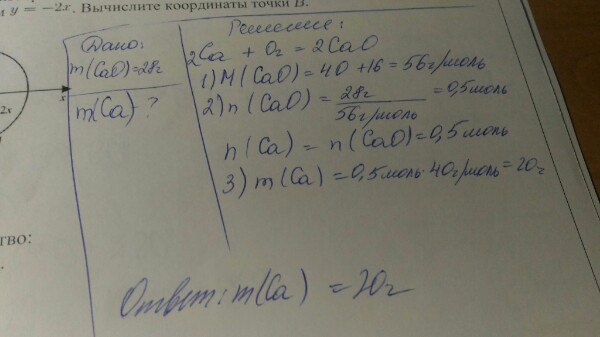 у = −2x. Вычислите координаты точки В.
Дано:
m(CaO)=28г
m(Ca) - ?
Решение:
2Ca + O₂ = 2CaO
1) M(CaO) = 40 + 16 = 56г/моль
2) n(CaO) = 28г / 56г/моль = 0,5моль
n(Ca) = n(CaO) = 0,5моль
3) m(Ca) = 0,5моль·40г/моль = 20г
Ответ: m(Ca) = 20г
x
2x
тво: